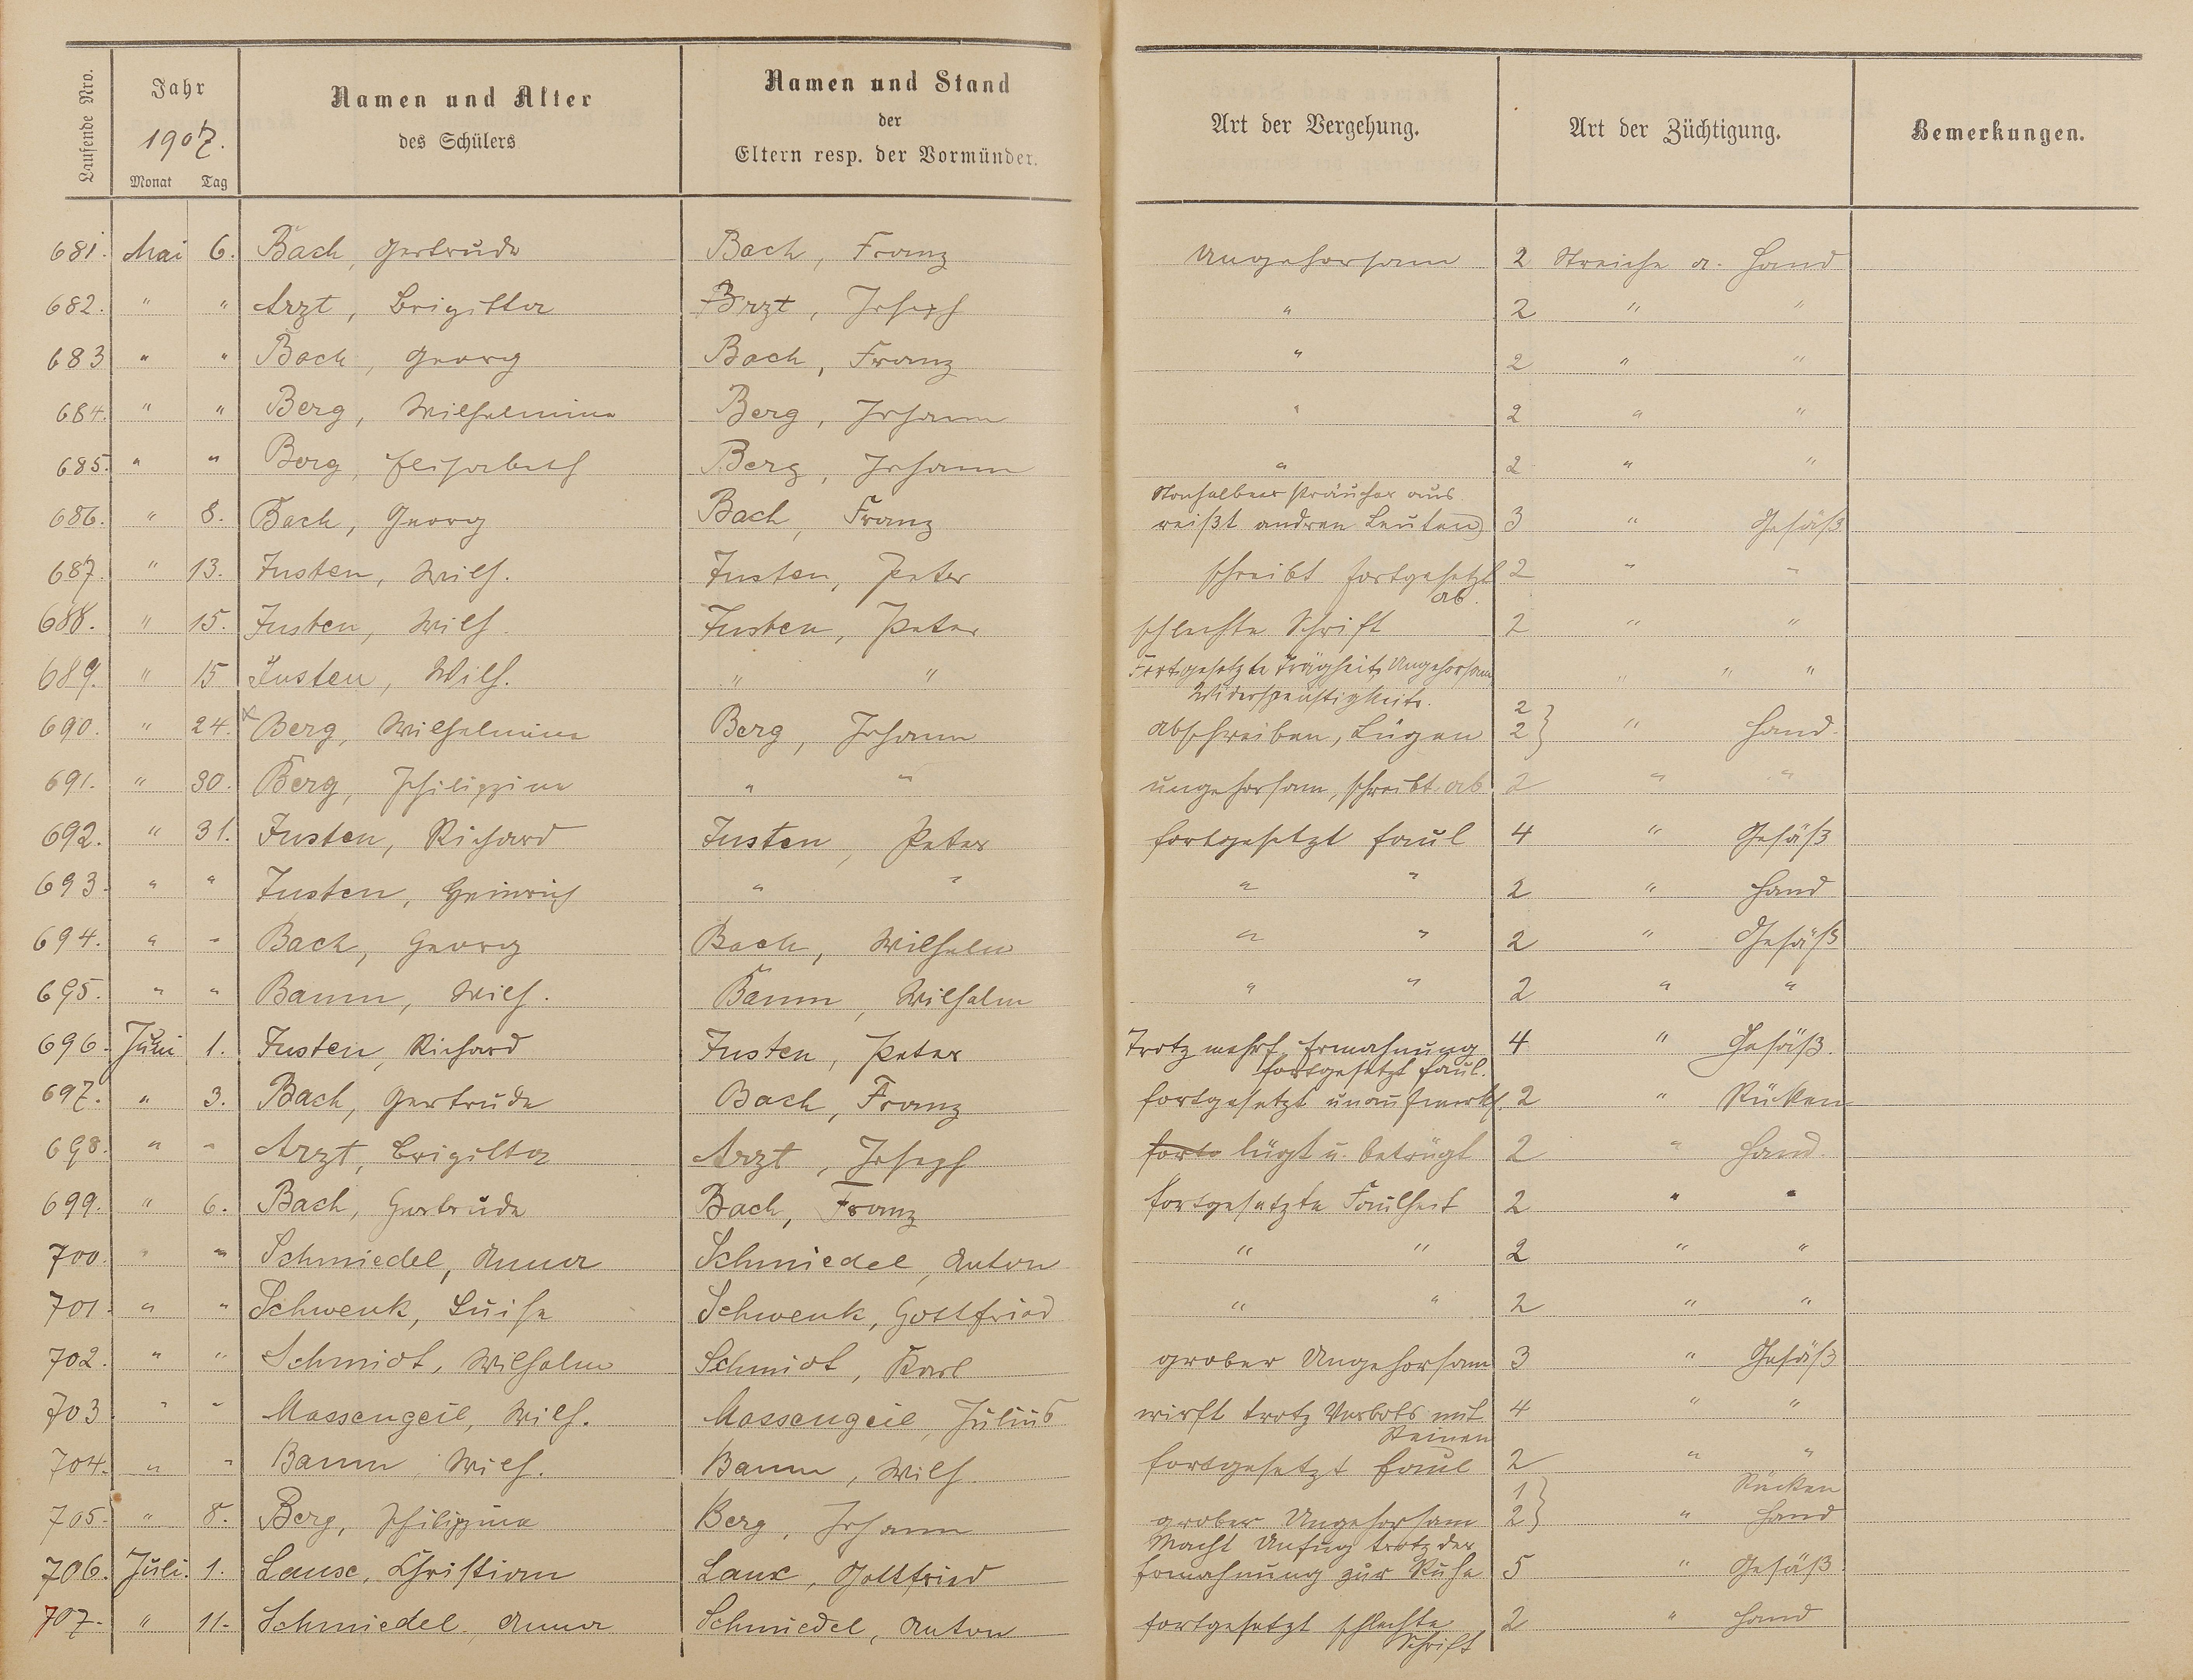 Laufende Nro.
Jahr
1907.
Monat Tag
Namen und Alter
des Schülers
Namen und Stand
der
Eltern resp. der Vormünder.
Art der Vergehung.
Art der Züchtigung.
Bemerkungen.
681. Mai 6. Bach, Gertrude Bach, Franz Ungehorsam 2 Streiche a. Hand
682. " " Arzt, Brigitta Arzt, Joseph " 2 " "
683 " " Bach, Georg Bach, Franz " 2 " "
684. " " Berg, Wilhelmine Berg, Johann " 2 " "
685. " " Berg, Elisabeth Berg, Johann " 2 " "
sträucher aus
686. " 8. Bach, Georg Bach, Franz reißt andren Leuten 3 " Gesäß
687. " 13. Justen, Wilh. Justen, Peter schreibt fortgesetzt 2 " "
ab.
688. " 15. Justen, Wilh. Justen, Peter schlechte Schrift 2 " "
689. " 15 Justen, Wilh. " " Fortgesetzte Trägheit, Ungehorsam, " " "
Widerspenstigkeit. 2
690. " 24. x Berg, Wilhelmine Berg, Johann abschreiben, Lügen 2} " Hand.
691. " 30. Berg, Philippine " " ungehorsam, schreibt ab 2 " "
692. " 31. Justen, Richard Justen, Peter fortgesetzt faul 4 " Gesäß
693. " " Justen, Heinrich " " " " 2 " Hand
694. " " Bach, Georg Bach, Wilhelm " " 2 " Gesäß
695. " " Baum, Wilh. Baum, Wilhelm " " 2 " "
696. Juni 1. Justen, Richard Justen, Peter Trotz mehrf. Ermahnung 4 " Gesäß.
fortgesetzt faul.
697. " 3. Bach, Gertrude Bach, Franz fortgesetzt unaufmerks. 2 " Rücken
698. " " Arzt, Brigitta Arzt, Joseph lügt u. betrügt 2 " Hand.
699. " 6. Bach, Gertrude Bach, Franz fortgesetzte Faulheit 2 " "
700. " " Schmiedel, Anna Schmiedel, Anton " " 2 " "
701. " " Schwenk, Luise Schwenk, Gottfried " " 2 " "
702. " " Schmidt, Wilhelm Schmidt, Karl grober Ungehorsam 3 " Gesäß
703 " " Massengeil, Wilh. Massengeil, Julius wirft trotz Verbots mit 4 " "
Steinen
704. " " Baum, Wilh. Baum, Wilh. fortgesetzt faul 2 " "
1 Rücken
705. " 8. Berg, Philippine Berg, Johann grober Ungehorsam 2} " Hand
Macht Unfug trotz der
706. Juli. 1. Laux, Christian Laux, Gottfried Ermahnung zur Ruhe 5 " Gesäß
707. " 11. Schmiedel, Anna Schmiedel, Anton fortgesetzt schlechte 2 " Hand
Schrift